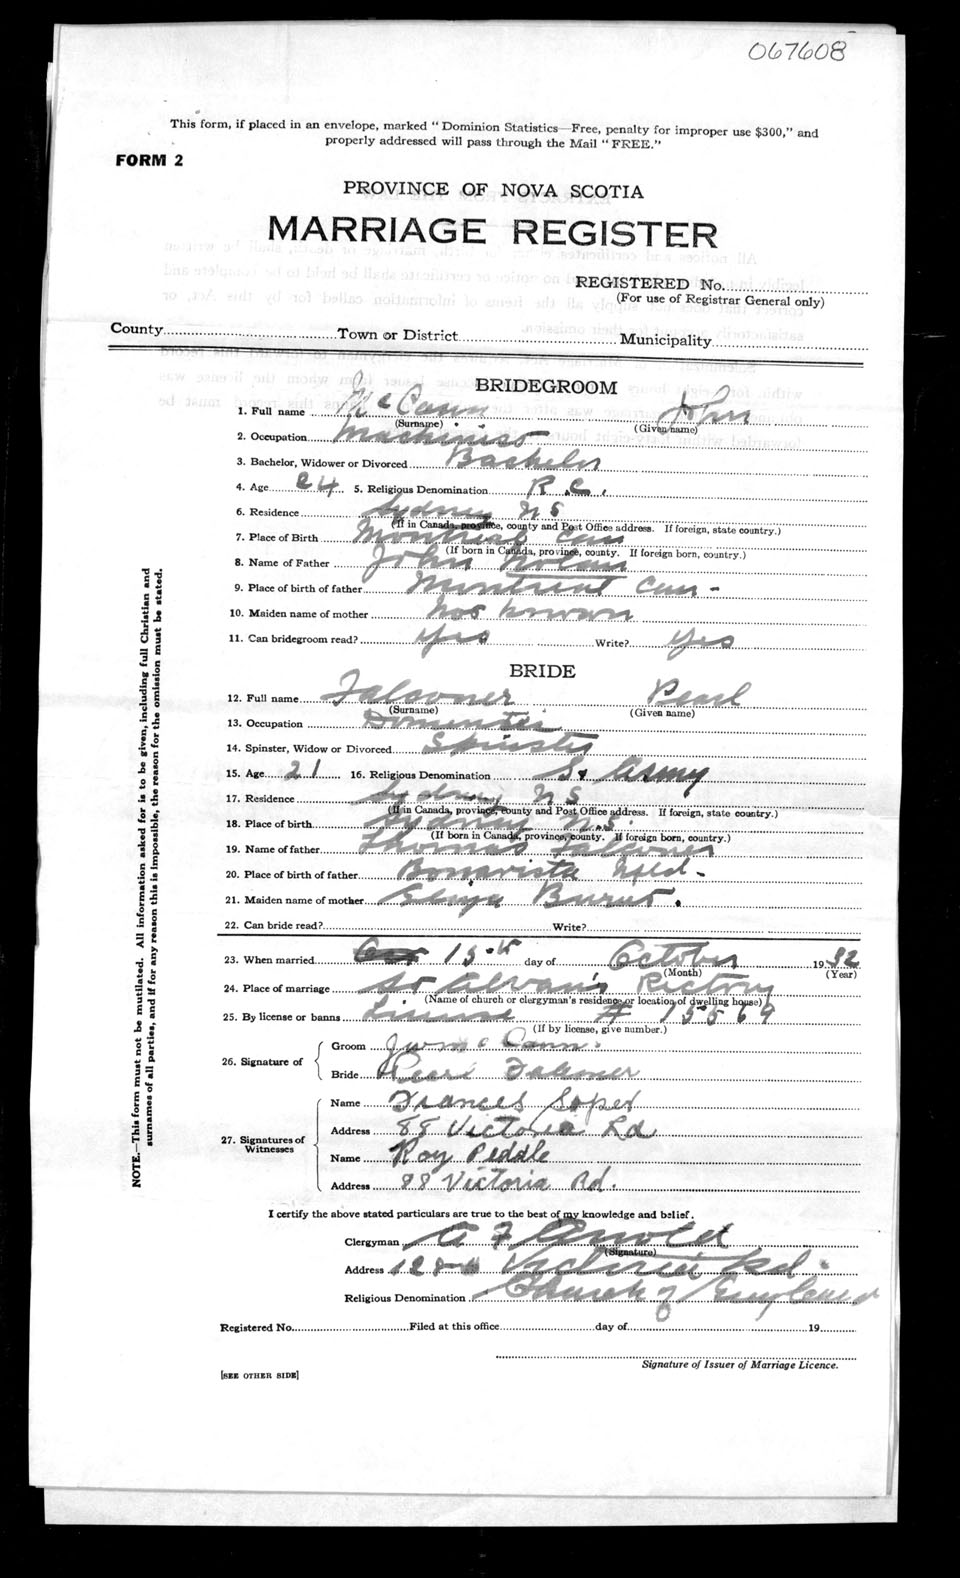 067608
This form, if placed in an envelope, marked "Dominion Statistics—Free, penalty for improper use $300," and
properly addressed will pass through the Mail "FREE."
FORM 2
PROVINCE OF NOVA SCOTIA
MARRIAGE REGISTER
REGISTERED No.
(For use of Registrar General only)
County Town or District Municipality
BRIDEGROOM
1. Full name McCann John
(Surname) (Given name)
2. Occupation Machinist
3. Bachelor, Widower or Divorced Bachelor
4. Age 24 5. Religious Denomination R.C.
6. Residence Sydney N S
(If in Canada, province, county and Post Office address. If foreign, state country.)
7. Place of Birth Montreal Can
(If born in Canada, province, county. If foreign born, country.)
8. Name of Father John Nolan
9. Place of birth of father Montreal Can -
10. Maiden name of mother Not known
11. Can bridegroom read? Yes Write? Yes
BRIDE
12. Full name Falconer Pearl
(Surname) (Given name)
13. Occupation Domestic
14. Spinster, Widow or Divorced Spinster
15. Age 21 16. Religious Denomination S. Army
17. Residence Sydney N S
(If in Canada, province, county and Post Office address. If foreign, state country.)
18. Place of birth Sydney N.S.
(If born in Canada, province, county. If foreign born, country.)
19. Name of father Thomas Falconer
20. Place of birth of father Bonavista Nfld -
21. Maiden name of mother
22. Can bride read? Write?
23. When married 15th day of October 1932
(Month) (Year)
24. Place of marriage St Alvan's Rectory
(Name of church or clergyman's residence or location of dwelling house)
25. By license or banns License # 15569
(If by license, give number.)
26. Signature of
Groom McCann.
Bride Pearl Falconer
27. Signatures of Witnesses
Name Frances Soper
Address 88 Victoria Rd
Name Roy Peddle
Address 88 Victoria Rd.
I certify the above stated particulars are true to the best of my knowledge and belief.
Clergyman A F Arnold
(Signature)
Address Victoria Rd.
Religious Denomination Church of England
Registered No. Filed at this office day of 19
Signature of Issuer of Marriage Licence.
[SEE OTHER SIDE]
NOTE.—This form must not be mutilated. All information asked for is to be given, including full Christian and
surnames of all parties, and if for any reason this is impossible, the reason for the omission must be stated.